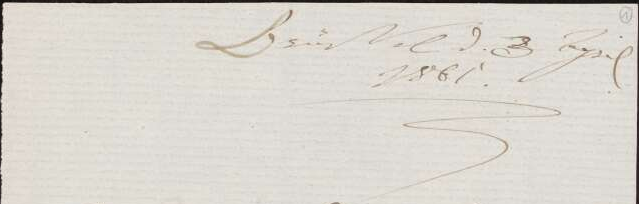 Brüssel d. 3 April
1861.
1